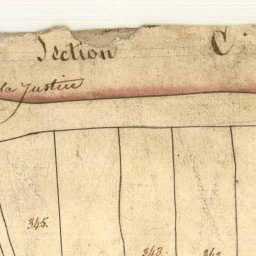 Section C
la Justice
345.
343. 342.